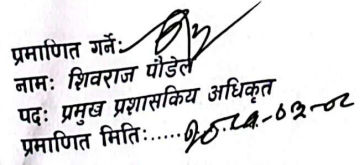 प्रमाणित गर्नेः
नामः शिवराज पौडेल
पदः प्रमुख प्रशासकिय अधिकृत
प्रमाणित मितिः.....